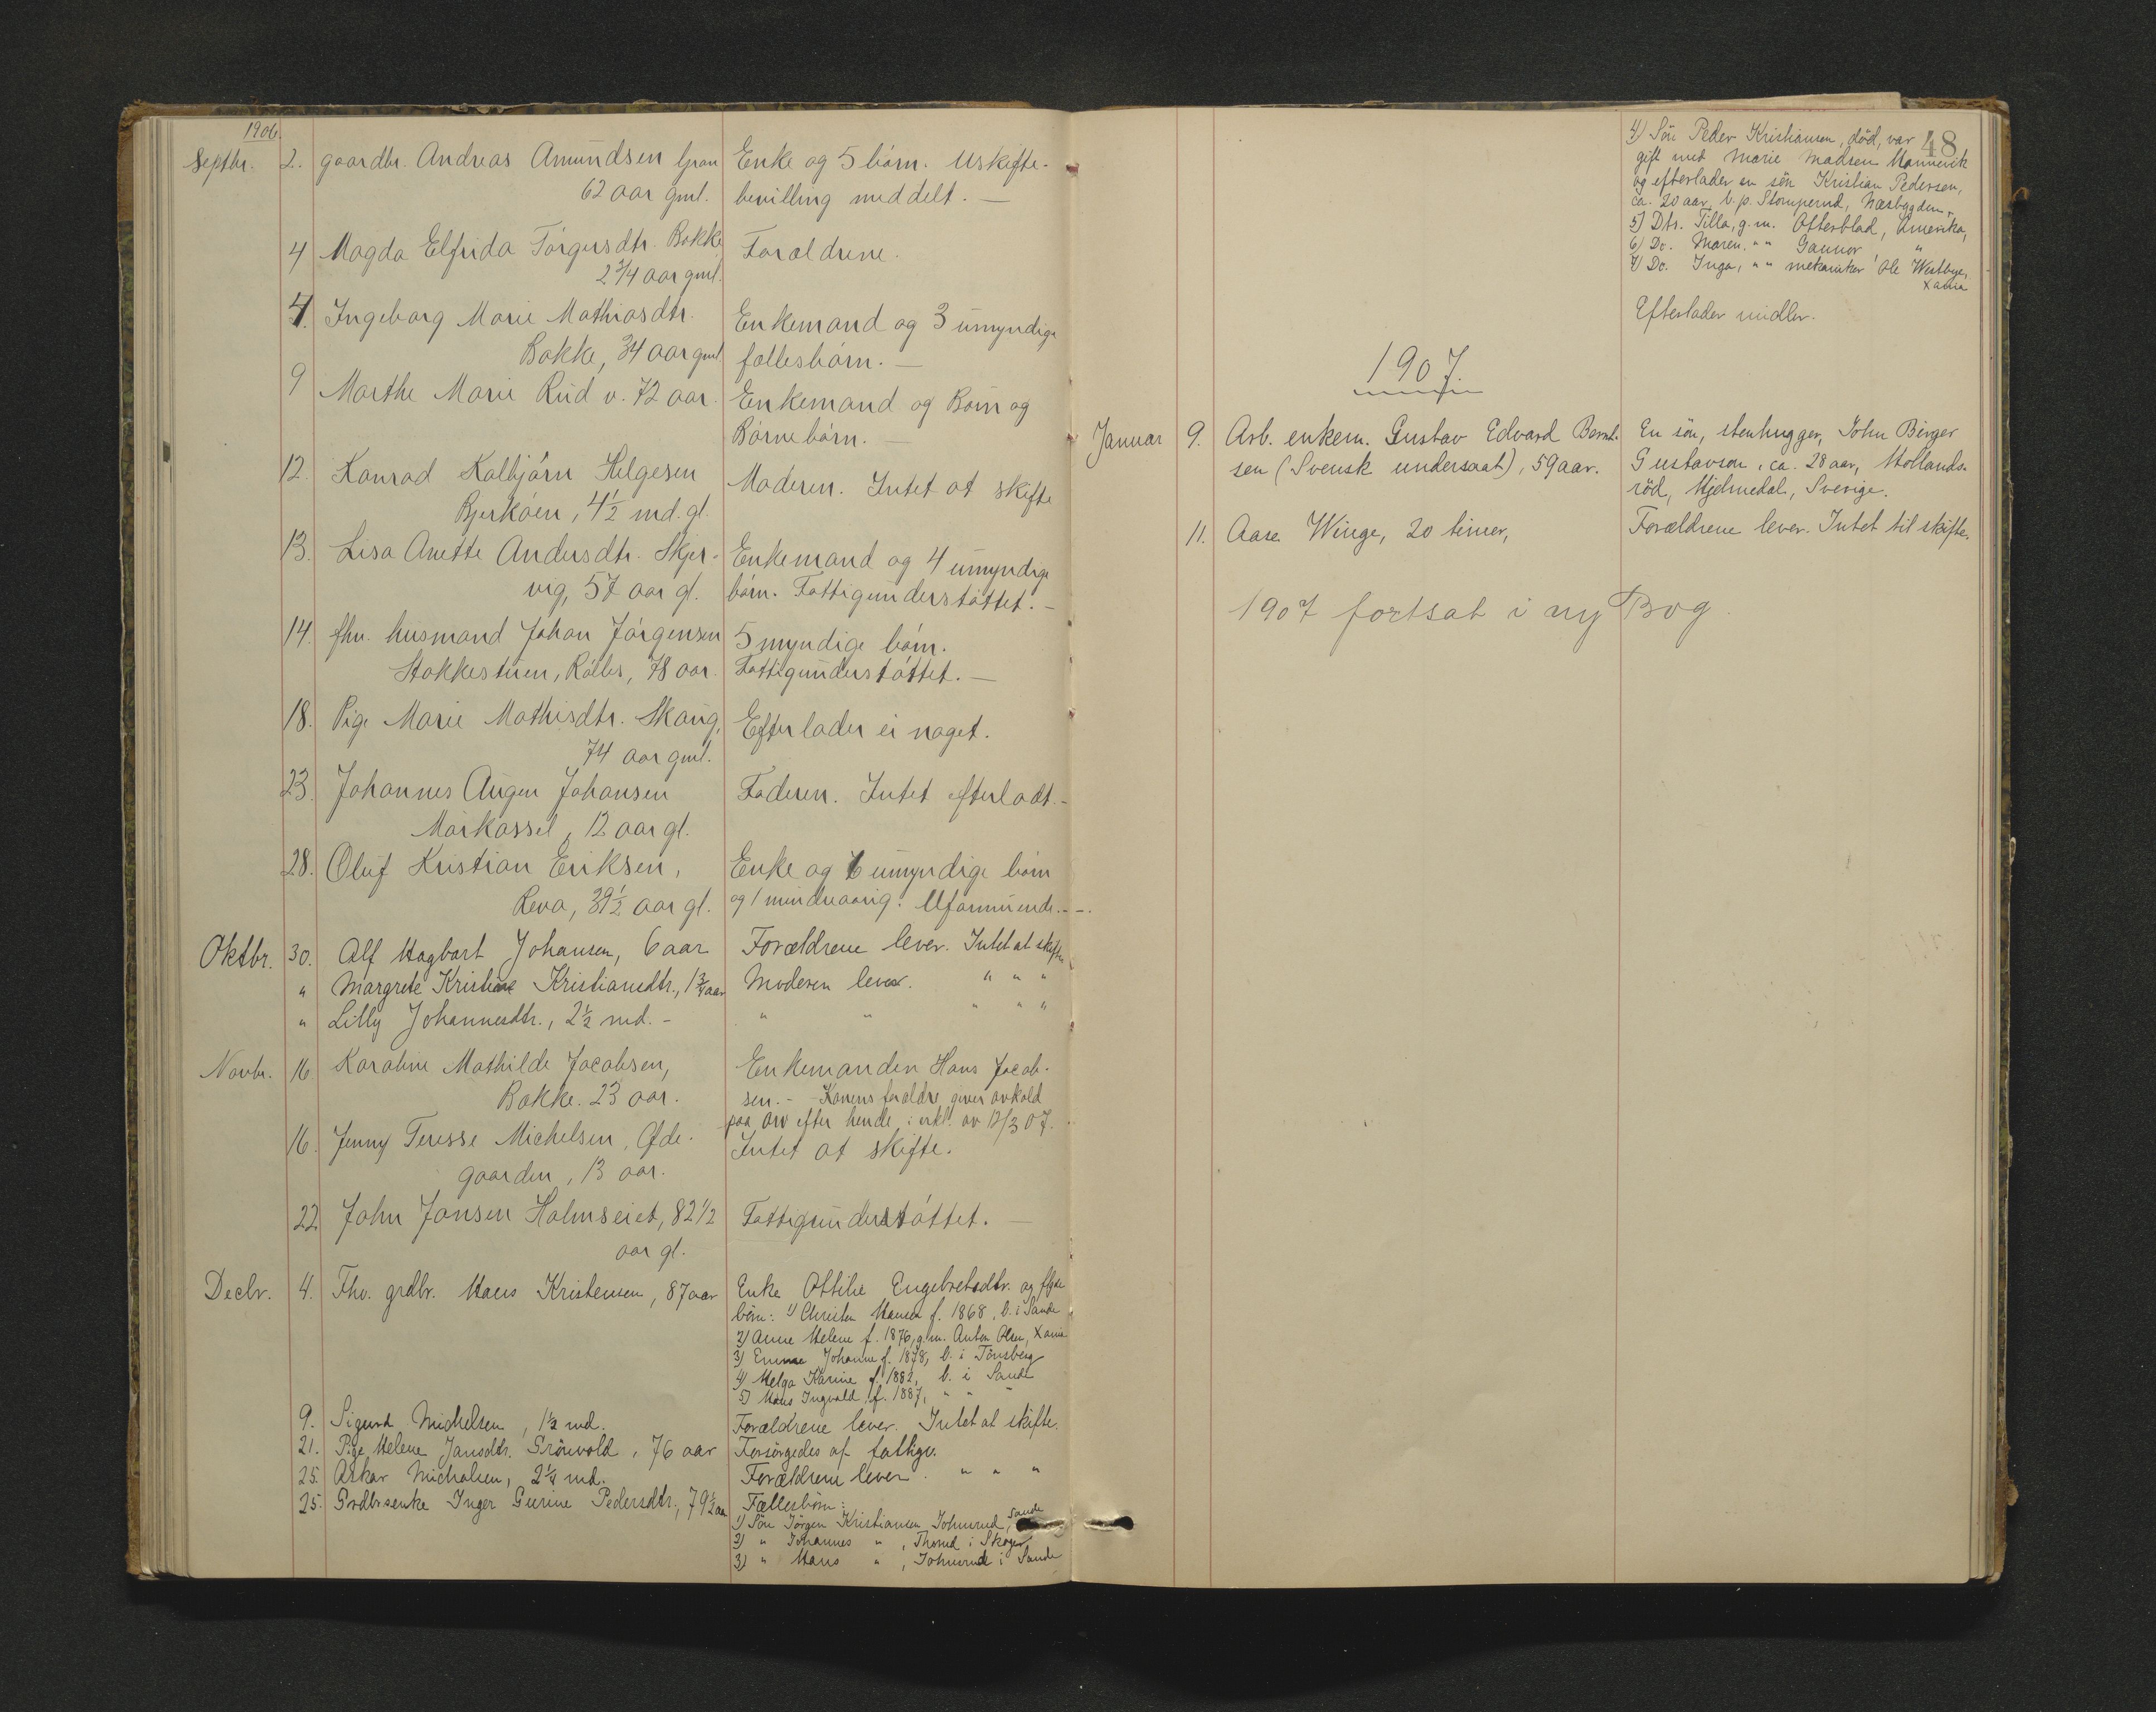 1906.
Septbr. 2. gaardbr. Andreas Amundsen Gran Enke og 5 børn. Uskifte-
62 aar gml. bevilling meddelt. —
4 Magda Elfrida Torgersdtr. Bakke Forældrene.
2 3/4 aar gml.
4. Ingeborg Marie Mathiasdtr. Enkemand og 3 umyndige
Bakke, 34 aar gml fællesbørn. —
9 Marthe Marie Rud v. 72 aar. Enkemand og Børn og
Børnebørn. —
12. Konrad Kolbjørn Helgesen Moderen. Intet at skifte
Bjerkøen, 4 1/2 md. gl.
13. Lisa Anette Andersdtr. Skjer- Enkemand og 4 umyndige
vig, 57 aar gl. børn. Fattigunderstøttet. —
14. fhv. husmand Johan Jørgensen 5 myndige børn.
Stokkestuen, 78 aar. Fattigunderstøttet. —
18. Pige Marie Mathisdtr. Skaug, Efterlader ei noget.
74 aar gml.
23. Johannes Augen Johansen Faderen. Intet efterladt. -
12 aar gl.
28. Oluf Kristian Eriksen, Enke og 6 umyndige børn
Reva, 39 1/2 aar gl. og 1 mindreaarig. Uformuende. - -.
Oktbr. 30. Alf Hagbart Johansen, 6 aar Forældrene lever. Intet at skifte
" Margrete Kristine Kristiansdtr., 1 3/4 aar Moderen lever. " " "
" Lilly Johannesdtr., 2 1/2 md. - " " " " "
Novbr. 16 Karoline Mathilde Jacobsen, Enkemanden Hans Jacob-
Bakke. 23 aar. sen. - Konens forældre giver avkald
paa arv efter hende i erkl. av 12/3 07.
16. Jenny Teresse Michelsen, Øde- Intet at skifte.
gaarden, 13 aar.
22 John Jonsen Holmseiet, 82 1/2 Fattigunderstøttet. —
aar gl.
Decbr. 4. Fhv. grdbr. Hans Kristensen, 87 aar Enke Ottilie Engebretsdtr. og flgde
børn: 1) Christen Hansen f. 1868, b. i Sande
2) Anne Helene f. 1876, g. m. Anton Olsen, Xania
3) Emma Johanne f. 1878, b. i Tønsberg
4) Helga Karine f. 1882, b. i Sande
5) Hans Ingvald f. 1887, " " "
9. Sigurd Michelsen, 1 1/2 md. Forældrene lever. Intet at skifte.
21. Pige Helene Jansdtr. Grønvold, 76 aar Forsørgedes af fattigv.
25. Askar Michalsen, 2 1/4 md. Forældrene lever. " " "
25. Grdbrsenke Inger Gurine Pedersdtr., 79 1/2 aar Fællesbørn:
1) Søn Jørgen Kristiansen Johnsrud, Sande
2) " Johannes " , Thorud i Skoger
3) " Hans " , Johnsrud i Sande
48
4) Søn Peder Kristiansen, død, var
gift med Marie Madsen Hannevik
og efterlader en søn Kristian Pedersen,
ca. 20 aar, b. p. Stomperud, Næsbygden,
5) Dtr. Tilla, g. m. Ofterblad, Amerika,
6) Do. Maren, " " Gannor "
7) Do. Inga, " " mekaniker Ole Westbye,
Xania
Efterlader midler.
1907.
Januar 9. Arb. enkem. Gustav Edvard Bernt- En søn, stenhugger, John Birger
sen (Svensk undersaat), 59 aar. Gustavson, ca. 28 aar, Hollands-
rød, Hjelmedal, Sverige.
11. Aase Winge, 20 timer, Forældrene lever. Intet til skifte.
1907 fortsat i ny Bog.